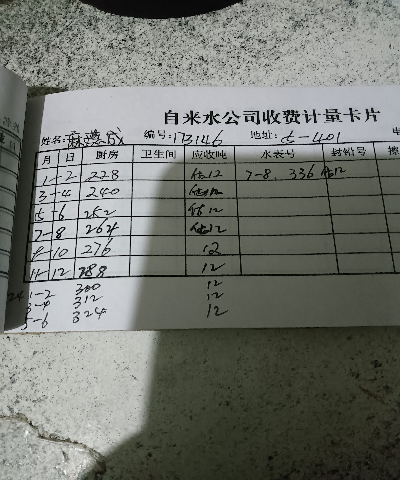 自来水公司收费计量卡片
姓名: 编号:173146 地址:六-401
月 日 厨房 卫生间 应收吨 水表号 封铅号
1-2 228 估12 7-8. 336 估12
3-4 240 估12
5-6 252 估12
7-8 264 估12
9-10 276 12
11-12 288 12
24 1-2 300 12
3-4 312 12
5-6 324 12